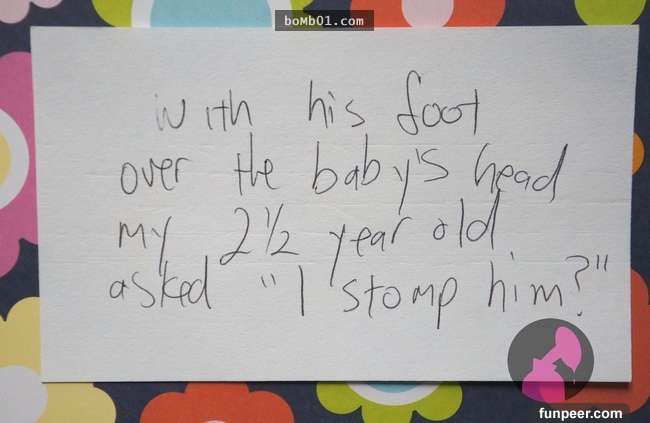 boMb01.com
with his foot
over the baby's head
my 2½ year old
asked "I stomp him?"
funpeer.com